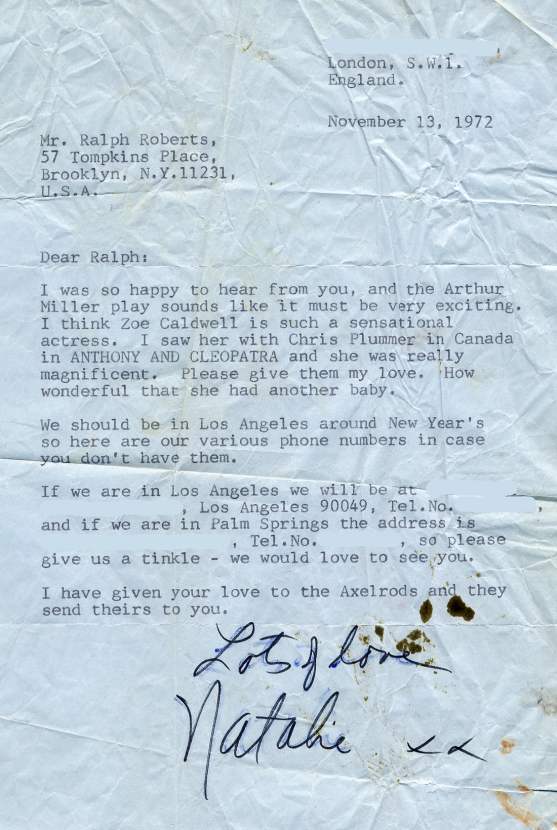 London, S.W.1.
England.
November 13, 1972
Mr. Ralph Roberts,
57 Tompkins Place,
Brooklyn, N.Y.11231,
U.S.A.
Dear Ralph:
I was so happy to hear from you, and the Arthur
Miller play sounds like it must be very exciting.
I think Zoe Caldwell is such a sensational
actress. I saw her with Chris Plummer in Canada
in ANTHONY AND CLEOPATRA and she was really
magnificent. Please give them my love. How
wonderful that she had another baby.
We should be in Los Angeles around New Year's
so here are our various phone numbers in case
you don't have them.
If we are in Los Angeles we will be at
, Los Angeles 90049, Tel.No. ,
and if we are in Palm Springs the address is
, Tel.No. , so please
give us a tinkle - we would love to see you.
I have given your love to the Axelrods and they
send theirs to you.
Lots of love
Natalie xx